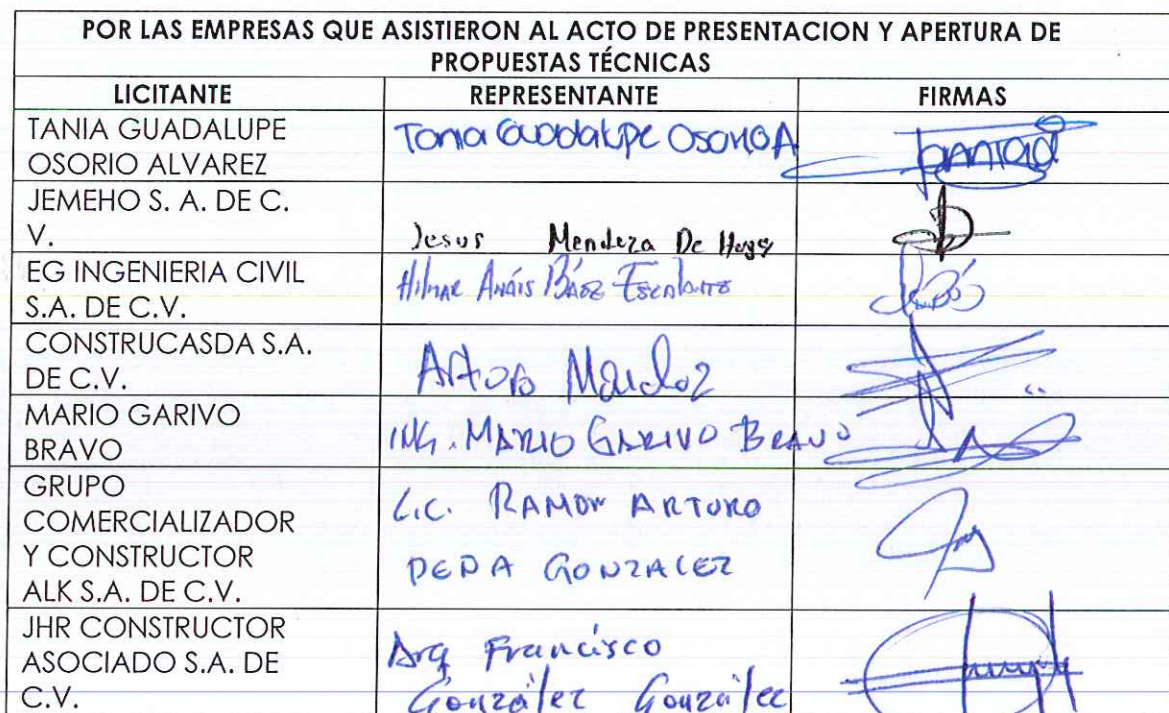 POR LAS EMPRESAS QUE ASISTIERON AL ACTO DE PRESENTACION Y APERTURA DE
PROPUESTAS TÉCNICAS
LICITANTE REPRESENTANTE FIRMAS
TANIA GUADALUPE
OSORIO ALVAREZ
Tania Guadalupe Osorio A
JEMEHO S. A. DE C.
V.
Jesus Mendeza De
EG INGENIERIA CIVIL
S.A. DE C.V.
Hilmar Anáis Báez Escalante
CONSTRUCASDA S.A.
DE C.V.
Arturo
MARIO GARIVO
BRAVO
ING. MARIO GARIVO BRAVO
GRUPO
COMERCIALIZADOR
Y CONSTRUCTOR
ALK S.A. DE C.V.
LIC. RAMON ARTURO
GONZALEZ
JHR CONSTRUCTOR
ASOCIADO S.A. DE
C.V.
Arq Francisco
González González